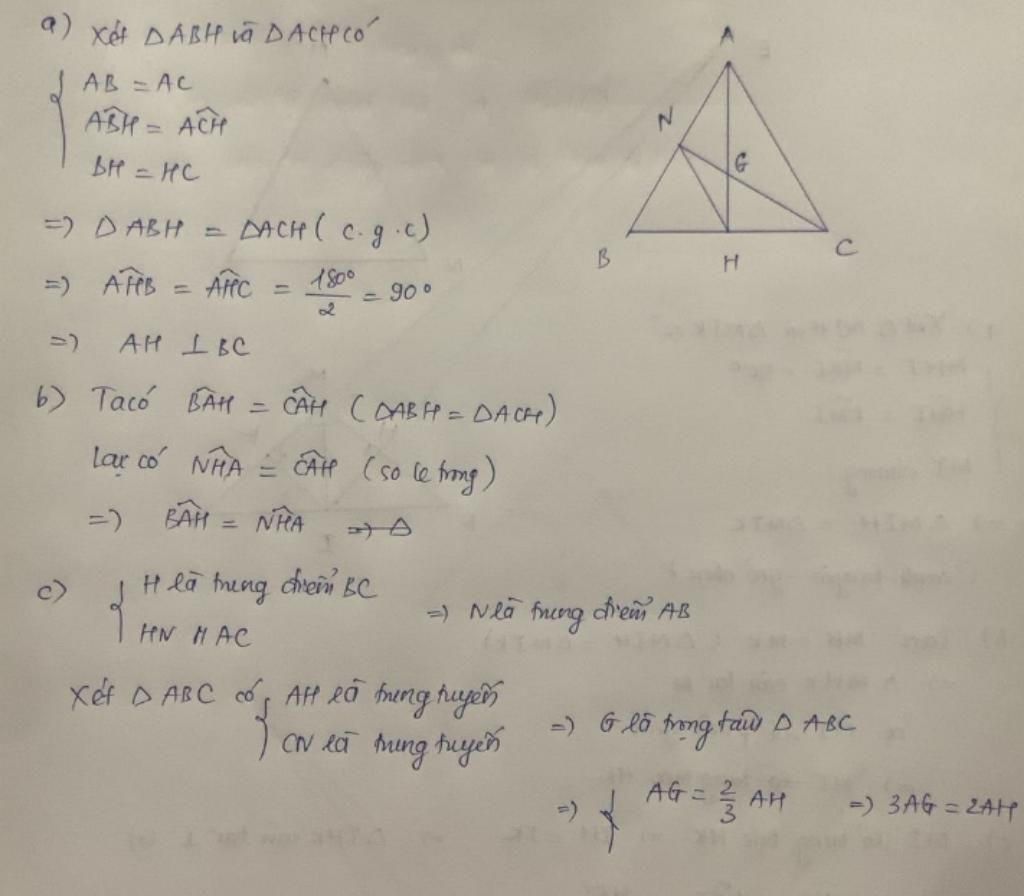 a) Xét ΔABH và ΔACH có
AB = AC
ABH^ = ACH^
BH = HC
=) ΔABH = ΔACH ( c.g.c)
=) AHB^ = AHC^ = 180°/2 = 90°
=) AH ⊥ BC
A
N
G
B
H
C
b) Ta có BAH^ = CAH^ ( ΔABH = ΔACH)
lại có NHA^ = CAH^ (so le trong)
=) BAH^ = NHA^ =) Δ
c) H là trung điểm BC
HN // AC
=) N là trung điểm AB
Xét ΔABC có AH là trung tuyến
CN là trung tuyến
=) G là trọng tâm ΔABC
=) AG = 2/3 AH =) 3AG = 2AH